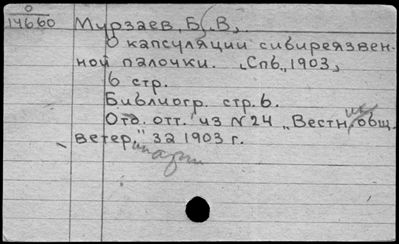 0
14660
Мурзаев, Б. В.
О капсуляции сибиреязвен-
ной палочки. „Спб„ 1903„
6 стр.
Библиогр. стр. 6.
Отд. отт. из N 24 „Вестн. общ.
ветер." за 1903 г.